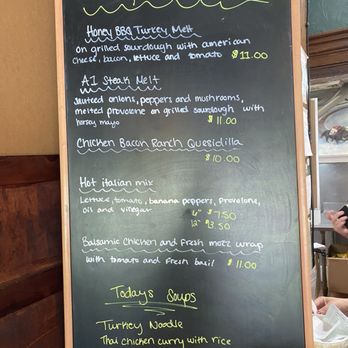 Honey BBQ Turkey Melt
on grilled sourdough with american
cheese, bacon, lettuce and tomato $11.00
A1 Steak Melt
sauteed onions, peppers and mushrooms,
melted provolone on grilled sourdough with
horsey mayo $11.00
Chicken Bacon Ranch Quesidilla
$10.00
Hot italian mix
Lettuce, tomato, banana peppers, provolone,
oil and vinegar 6" $7.50
12" $13.50
Balsamic Chicken and Fresh mozz wrap
with tomato and fresh basil $11.00
Todays Soups
Turkey Noodle
Thai chicken curry with rice